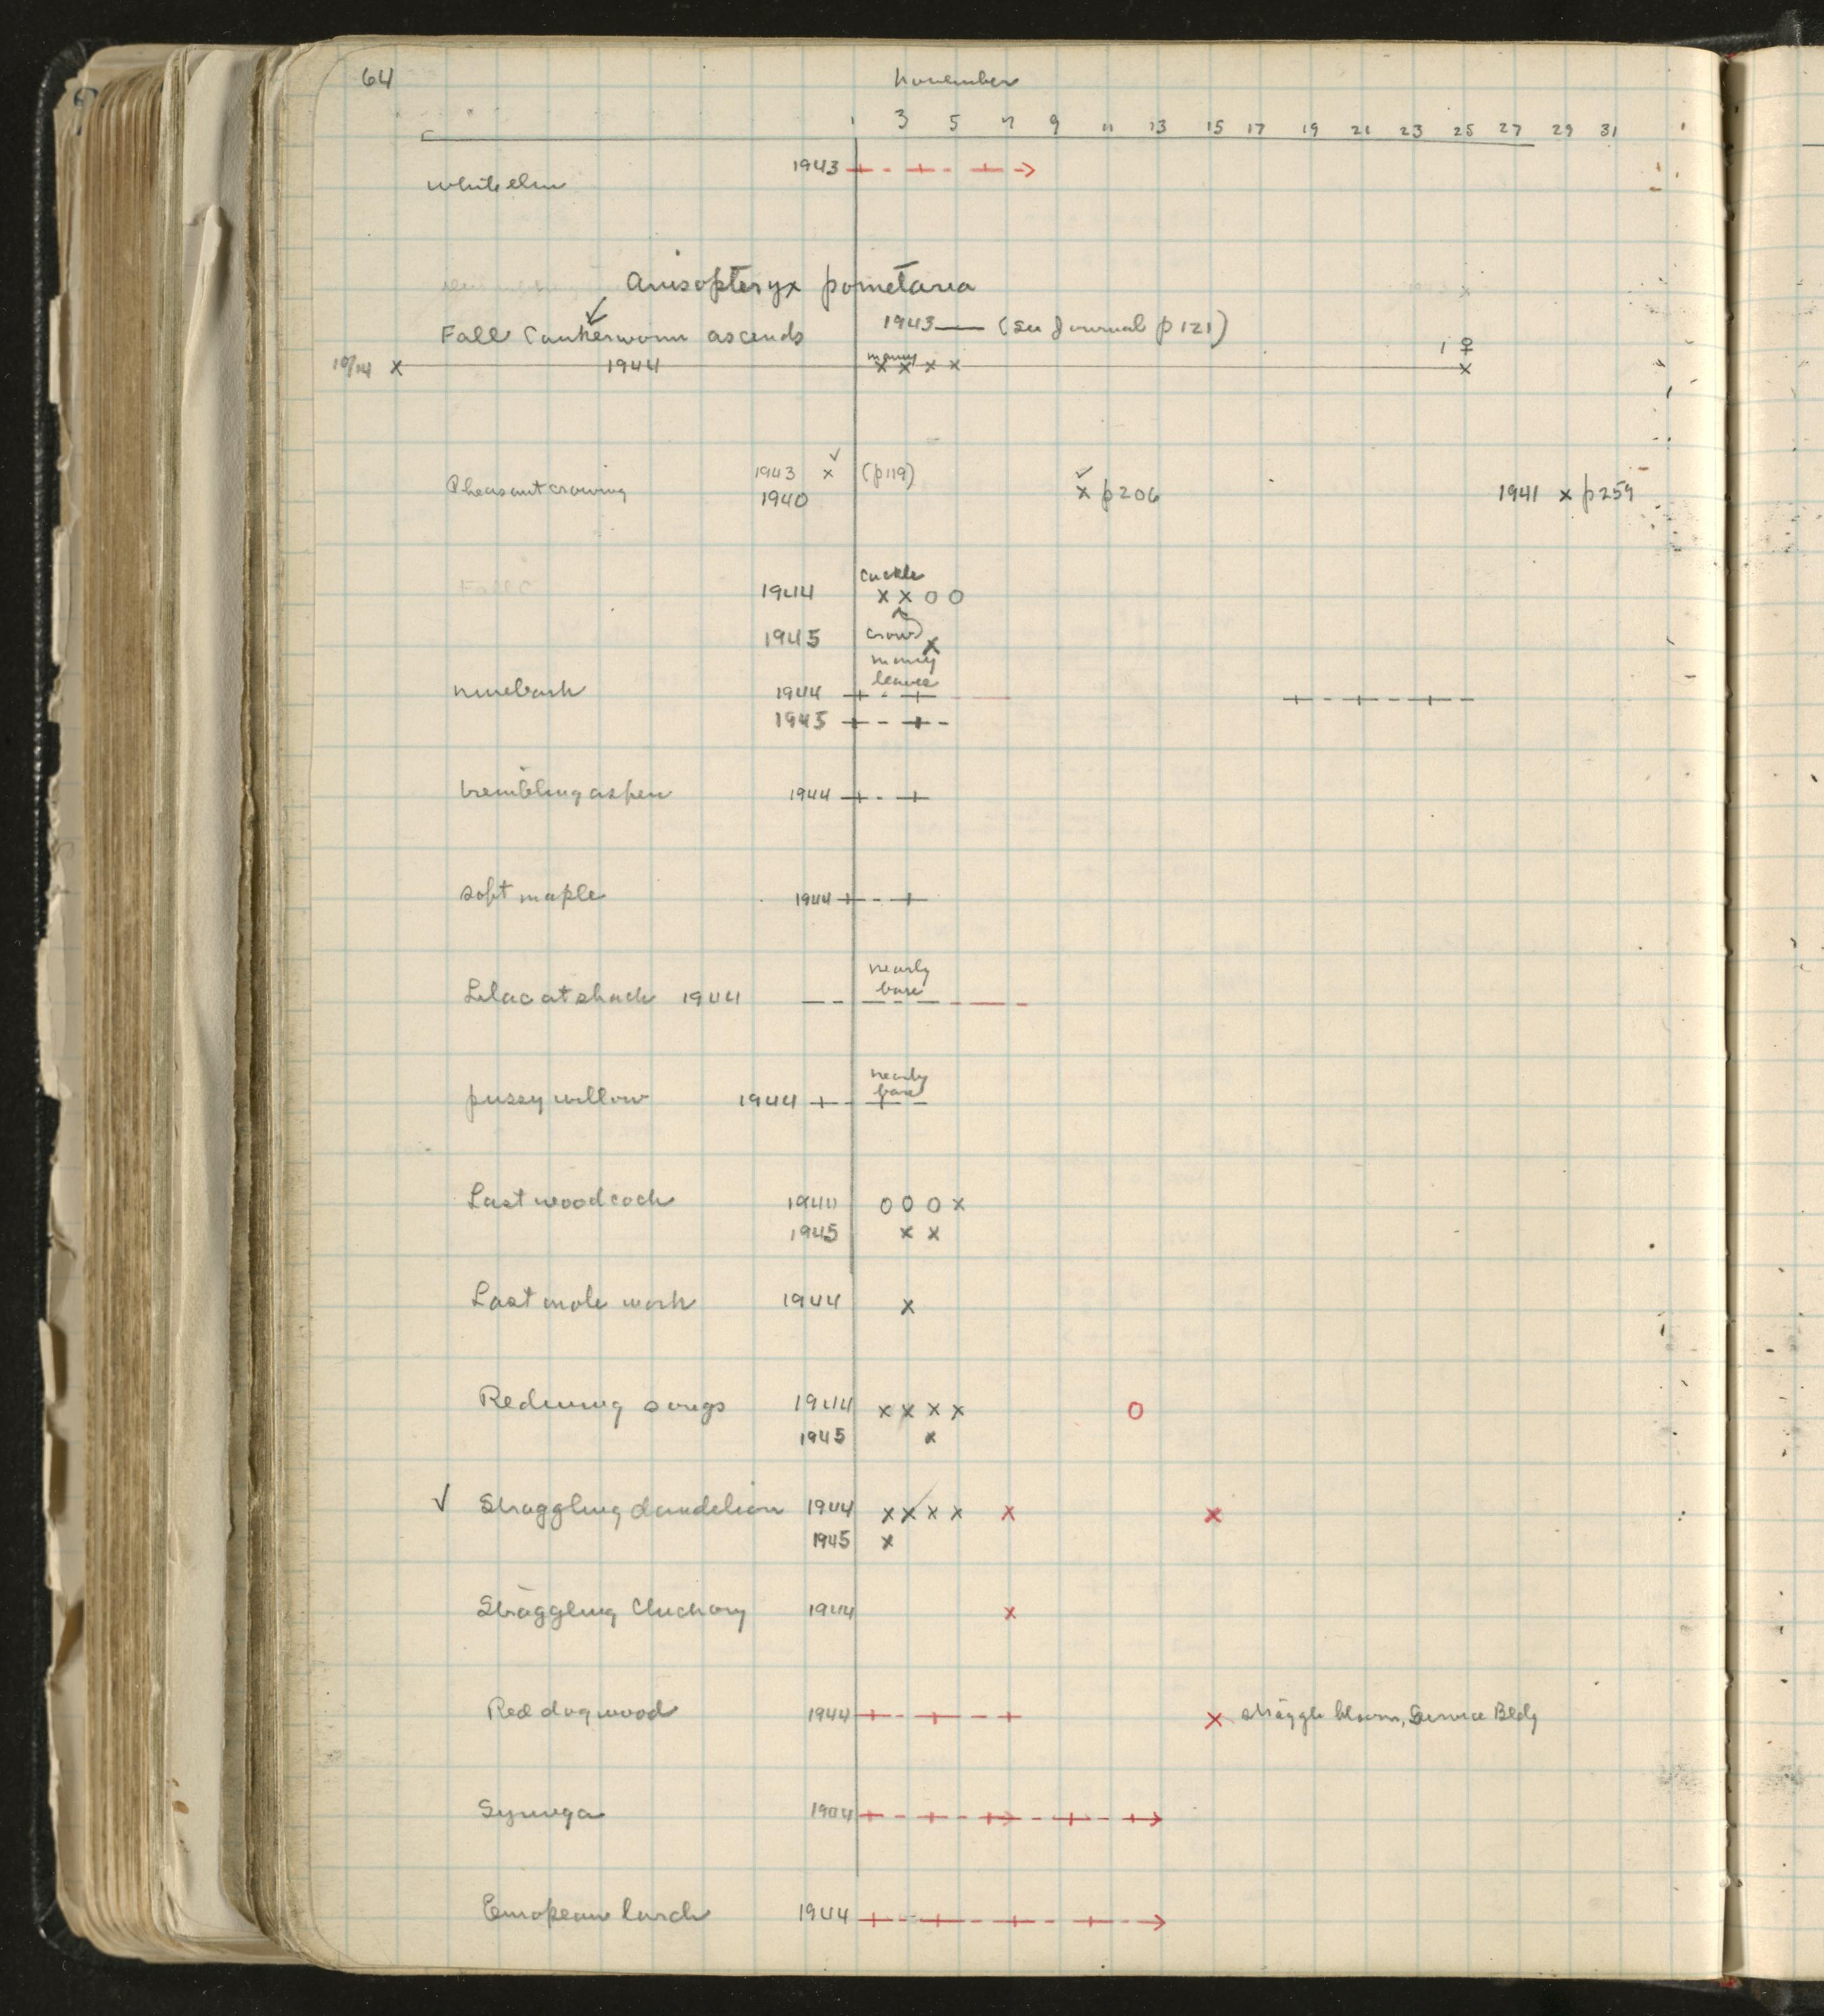 64 November
1 3 5 7 9 11 13 15 17 19 21 23 25 27 29 31
white elm 1943
Anisopteryx pometaria
Fall Cankerworm ascends 1943 (see Journal p 121)
1 ♀
10/14 x 1944 many x x x x x
1943 x (p119)
Pheasant crowing 1940 x p206 1941 x p259
cackle
1944 x x o o
1945 crow x
many
leaves
ninebark 1944
1945
trembling aspen 1944
soft maple 1944
nearly
bare
Lilac at shack 1944
nearly
bare
pussy willow 1944
Last woodcock 1944 o o o x
1945 x x
Last mole work 1944 x
Redwing songs 1944 x x x x o
1945 x
✓ Straggling dandelion 1944 x x x x x x
1945 x
Straggling Chickory 1944 x
Red dogwood 1944 x straggle bloom, Service Bldg
Syringa 1944
European larch 1944